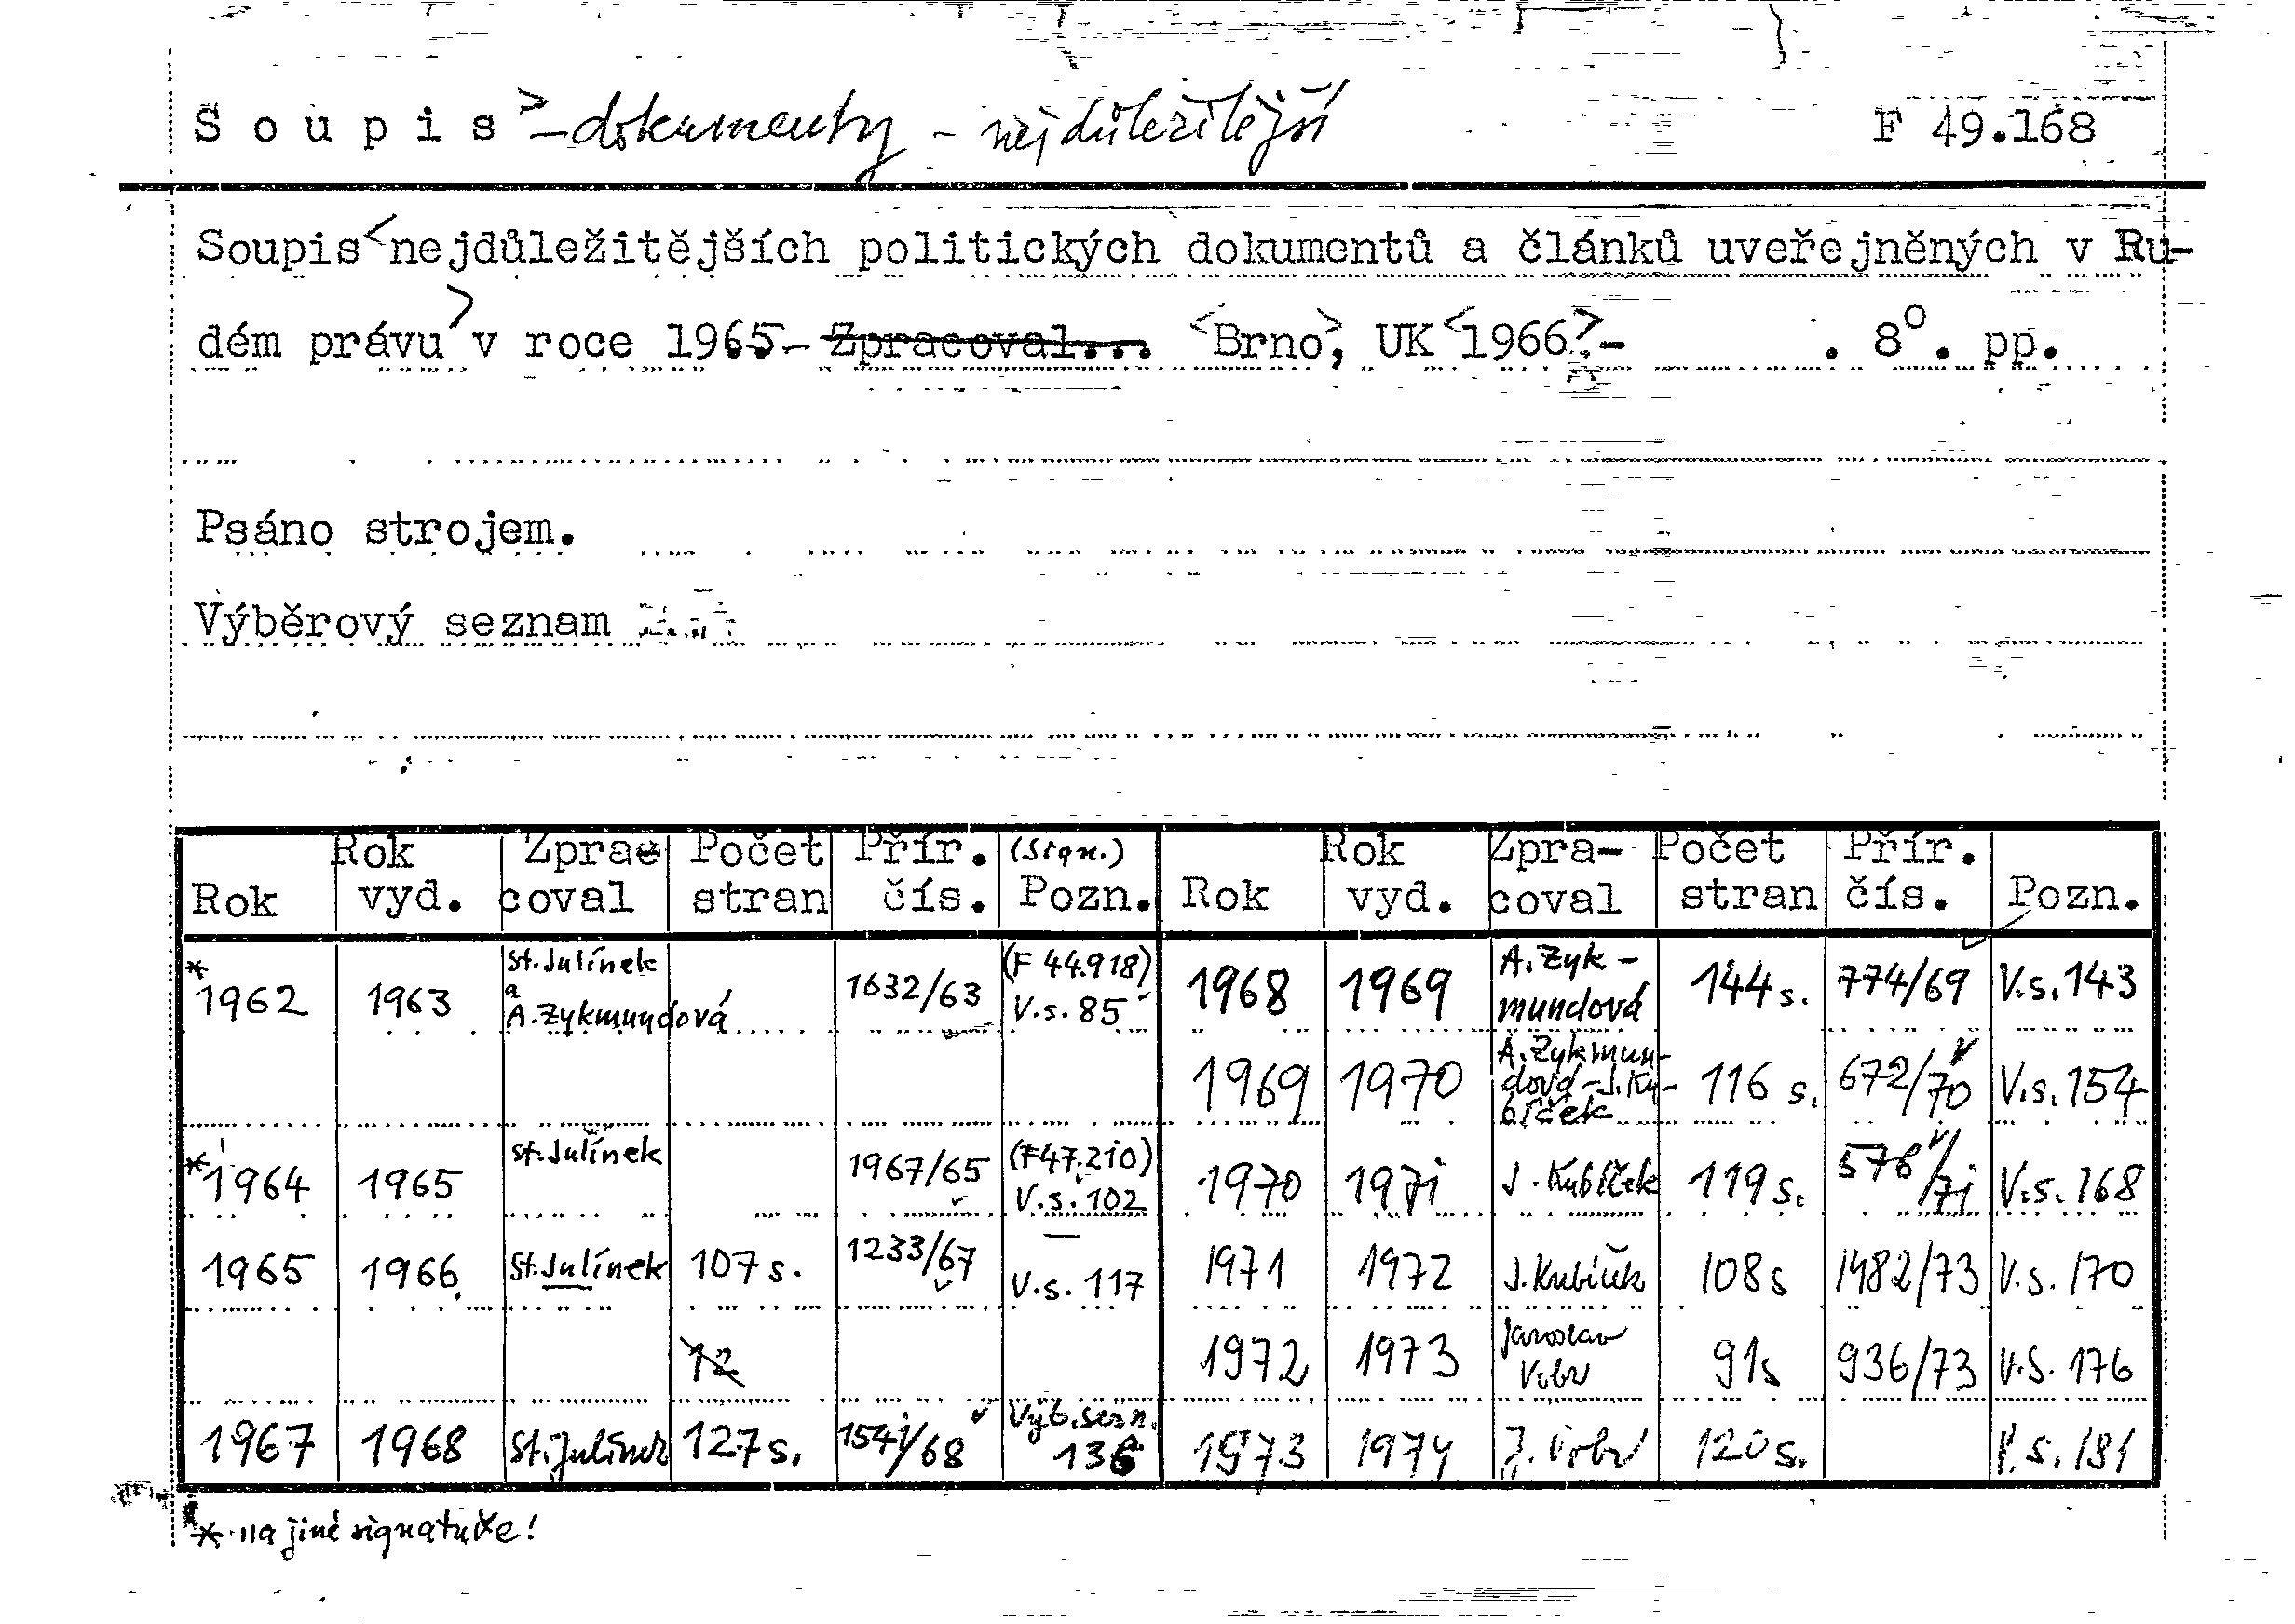 Soupis > - dokumenty - nejdůležitější F 49.168
Soupis < nejdůležitějších politických dokumentů a článků uveřejněných v Ru-
dém právu > v roce 1965.- Zpracoval... <Brno>, UK <1966>.- . 8° . pp.
Psáno strojem.
Výběrový seznam
Rok | Rok vyd. | Zpracoval | Počet stran | Přír. čís. | (Sign.) Pozn. | Rok | Rok vyd. | Zpra-coval | Počet stran | Přír. čís. | Pozn.
* 1962 | 1963 | St. Julínek a A. Zykmundová | | 1632/63 | (F 44.918) V.s. 85 | 1968 | 1969 | A. Zyk-mundová | 144 s. | 774/69 | V.s. 143
1969 | 1970 | A. Zykmun-dová - J. Ku-bíček | 116 s. | 672/70 | V.s. 154
* 1964 | 1965 | St. Julínek | | 1967/65 | (F 47.210) V.s. 102 | 1970 | 1971 | J. Kubíček | 119 s. | 576/71 | V.s. 168
1965 | 1966 | St. Julínek | 107 s. | 1233/67 | V.s. 117 | 1971 | 1972 | J. Kubíček | 108 s | 1482/73 | V.s. 170
12 | 1972 | 1973 | Jaroslav Vobr | 91 s | 936/73 | V.S. 176
1967 | 1968 | St. Julínek | 127 s. | 1541/68 | Výb. sezn. 136 | 1973 | 1974 | J. Vobr | 120 s. | | V.s. 181
* na jiné signatuře!